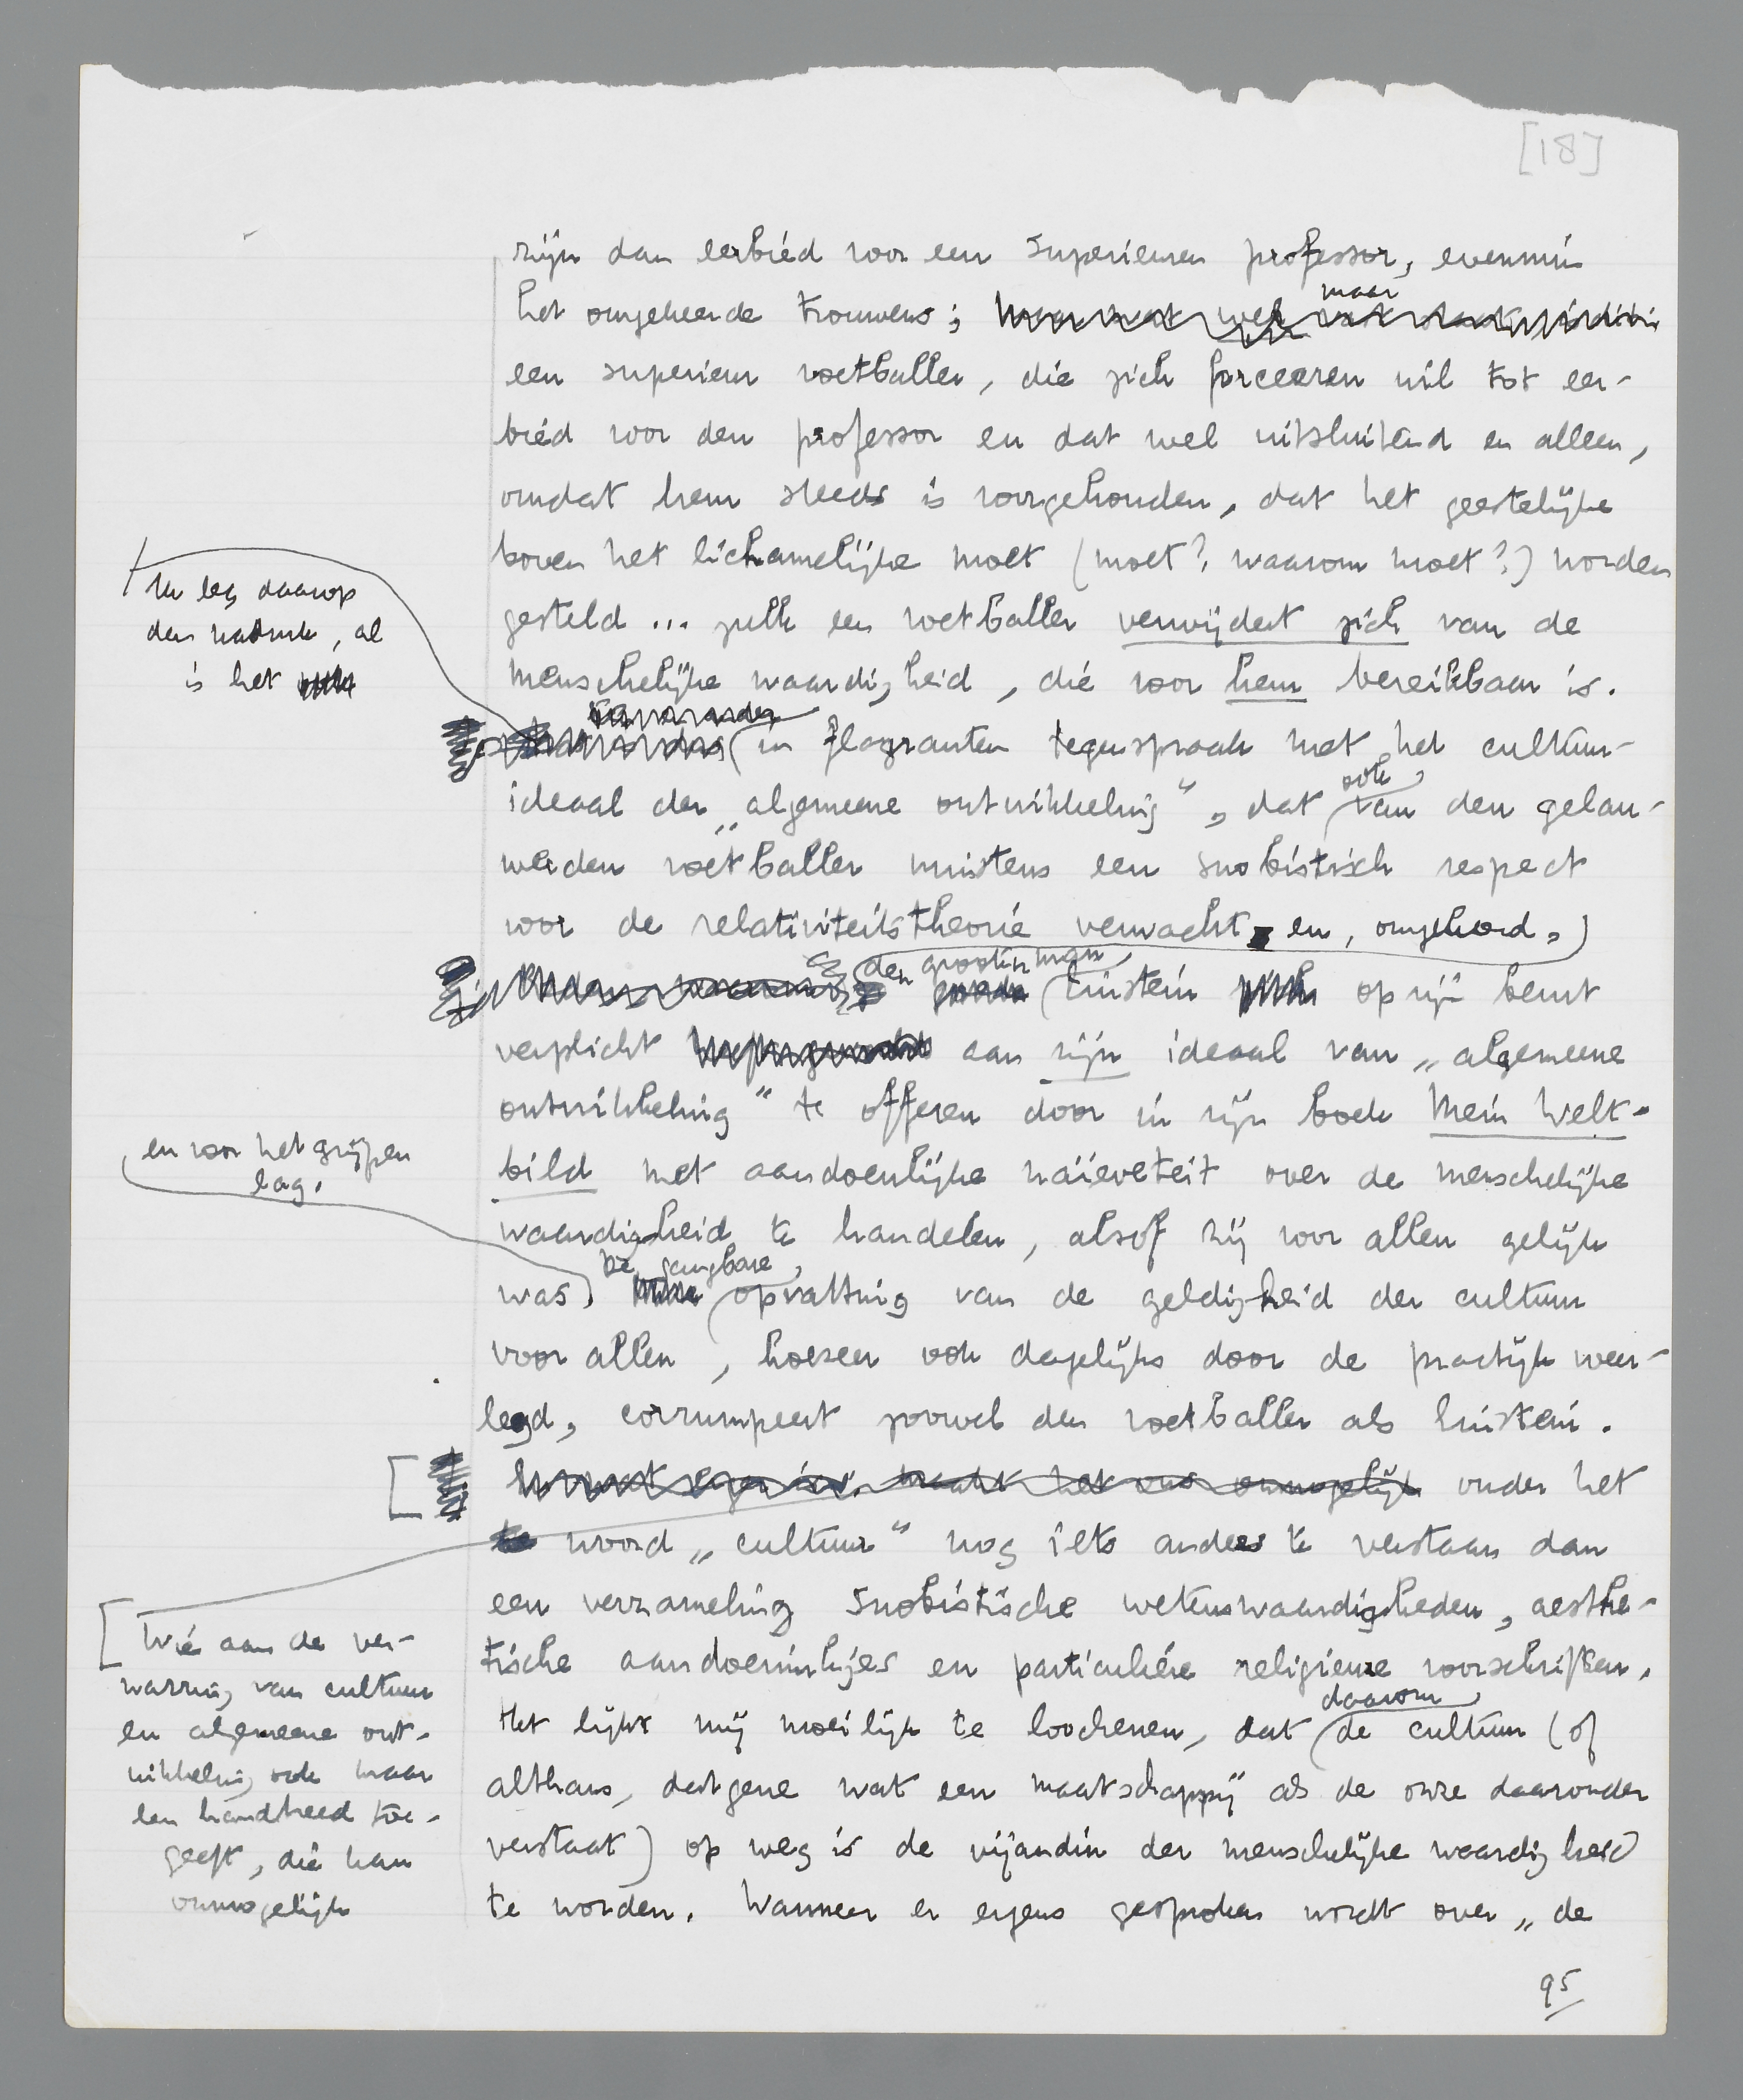 [18]
zijn dan eerbied voor een superieuren professor, evenmin
het omgekeerde trouwens; maar
een superieur voetballer, die zich forceeren wil tot eer-
bied voor den professor en dat wel uitsluitend en alleen,
omdat hem steeds is voorgehouden, dat het geestelijke
boven het lichamelijke moet (moet? waarom moet?) worden
gesteld ... zulk een voetballer verwijdert zich van de
menschelijke waardigheid, die voor hem bereikbaar is.
Ik leg daarop
den nadruk, al
is het
in flagranten tegenspraak met het cultuur-
ideaal der „algemeene ontwikkeling”, dat ook van den gelau-
werden voetballer minstens een snobistisch respect
voor de relativiteitstheorie verwacht en, omgekeerd,
den grooten man Einstein op zijn beurt
verplicht aan zijn ideaal van „algemeene
ontwikkeling” te offeren door in zijn boek Mein Welt-
bild met aandoenlijke naïeveteit over de menschelijke
waardigheid te handelen, alsof zij voor allen gelijk
was
en voor het grijpen
lag.
De gangbare opvatting van de geldigheid der cultuur
voor allen, hoezeer ook dagelijks door de practijk weer-
legd, corrumpeert zoowel den voetballer als Einstein.
[Wie aan de ver-
warring van cultuur
en algemeene ont-
wikkeling ook maar
een handbreed toe-
geeft, die kan
onmogelijk
onder het
woord „cultuur” nog iets anders te verstaan dan
een verzameling snobistische wetenswaardigheden, aesthe-
tische aandoeninkjes en particuliere religieuze voorschriften.
Het lijkt mij moeilijk te loochenen, dat daarom de cultuur (of
althans, datgene wat een maatschappij als de onze daaronder
verstaat) op weg is de vijandin der menschelijke waardigheid
te worden. Wanneer er ergens gesproken wordt over „de
95